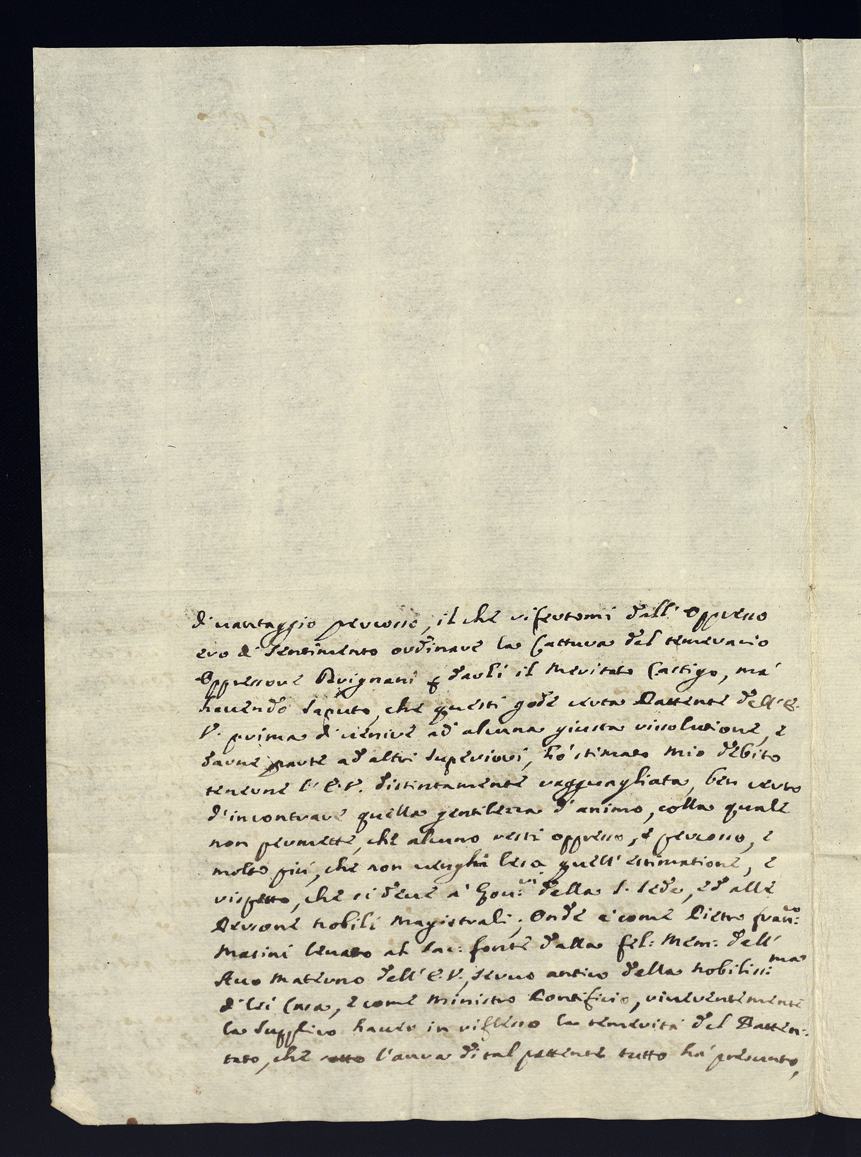 di vantaggio percosso, il che riferitomi dall' oppresso
ero di sentimento ordinare la Cattura del temerario
Oppressore Avignani p darli il meritato Castigo, mà
havendo saputo, che questi gode certa Pattente dell' E.
V. prima di venire ad alcuna giusta rissoluzione, e
darne parte ad altri superiori, hò stimato mio debito
tenerne l' E.V. distintamente ragguagliata, ben certo
d'incontrare quella gentilezza d'animo, colla quale
non permette, che alcuno resti oppresso, e percosso, e
molto più, che non venghi lesa quell' estimatione, e
rispetto, che si deve a' Gou:ri della S. Sede, ed alle
Persone nobili Magistrali; Onde e come Pietro Fran:co
Masini levato al Sac: fonte dalla fel: Mem: dell'
Avo Materno dell' E.V, servo antico della nobiliss:ma
di Lei Casa, e come Ministro Pontificio, riverentemente
la supplico haver in riflesso la temerità del Patten:
tato, che sotto l'aura di tal pattente tutto hà presunto,